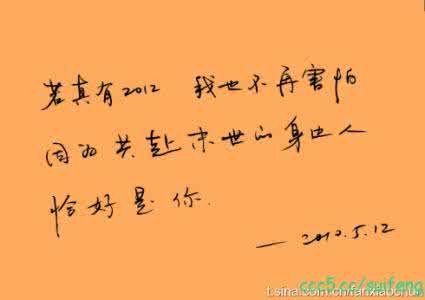 若真有2012 我也不再害怕
因为共赴末世的身边人
恰好是你.
—2010.5.12
ccc5.cc/suifeng